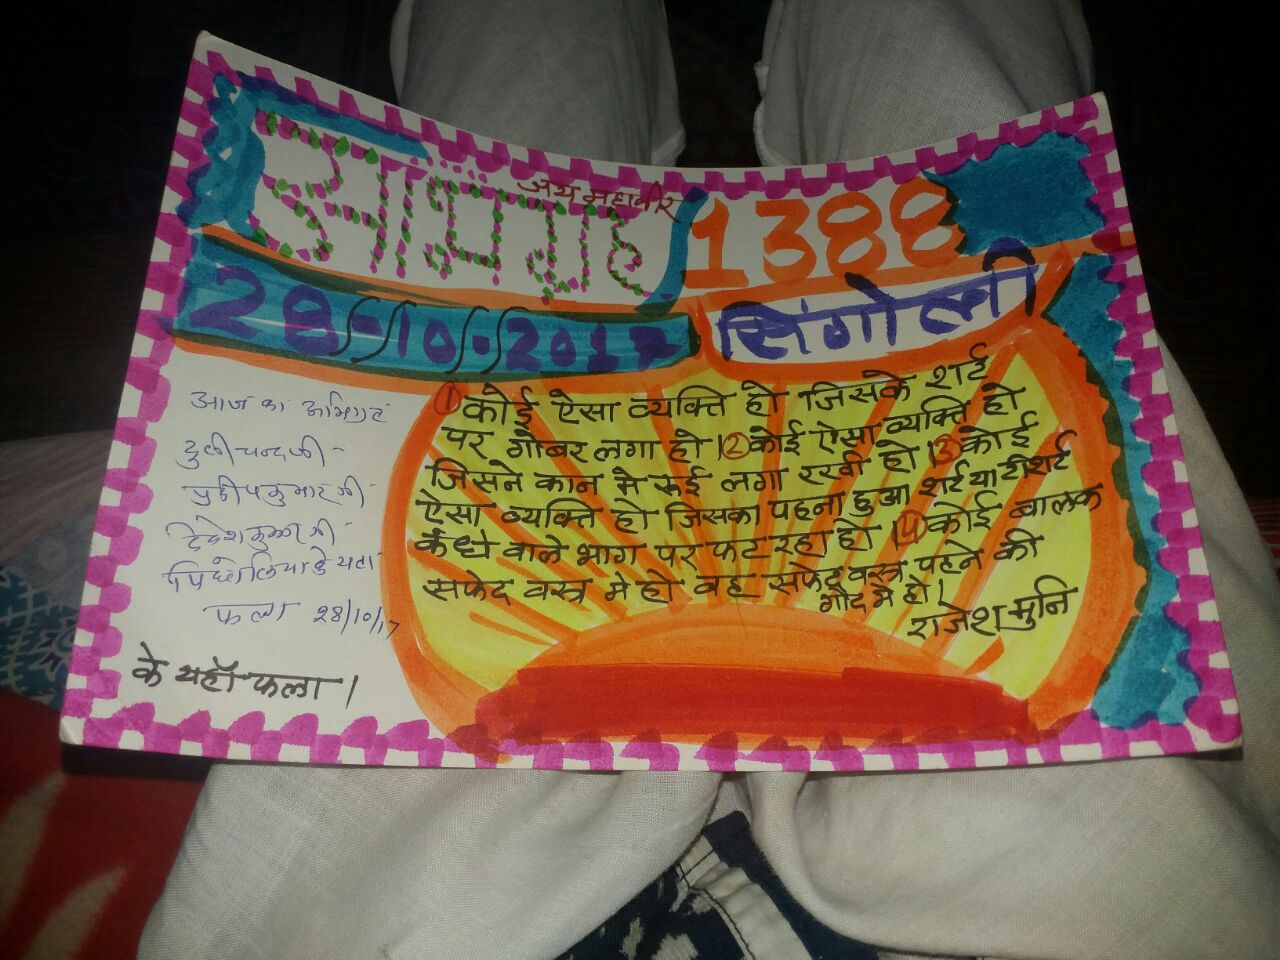 जय महावीर
अभिग्रह 1388
28-10-2017 सिंगोली
① कोई ऐसा व्यक्ति हो जिसके शर्ट
पर गोबर लगा हो। ② कोई ऐसा व्यक्ति हो
जिसने कान मे रूई लगा रखी हो। ③ कोई
ऐसा व्यक्ति हो जिसका पहना हुआ शर्ट या टीशर्ट
कंधे वाले भाग पर फट रहा हो। ④ कोई बालक
सफेद वस्त्र मे हो वह सफेद वस्त्र पहने की
गोद मे हो।
राजेश मुनि
आज का अभिग्रह
दुलीचन्दजी
प्रदीपकुमारजी
जी
फला 28/10/17
के यहाँ फला।